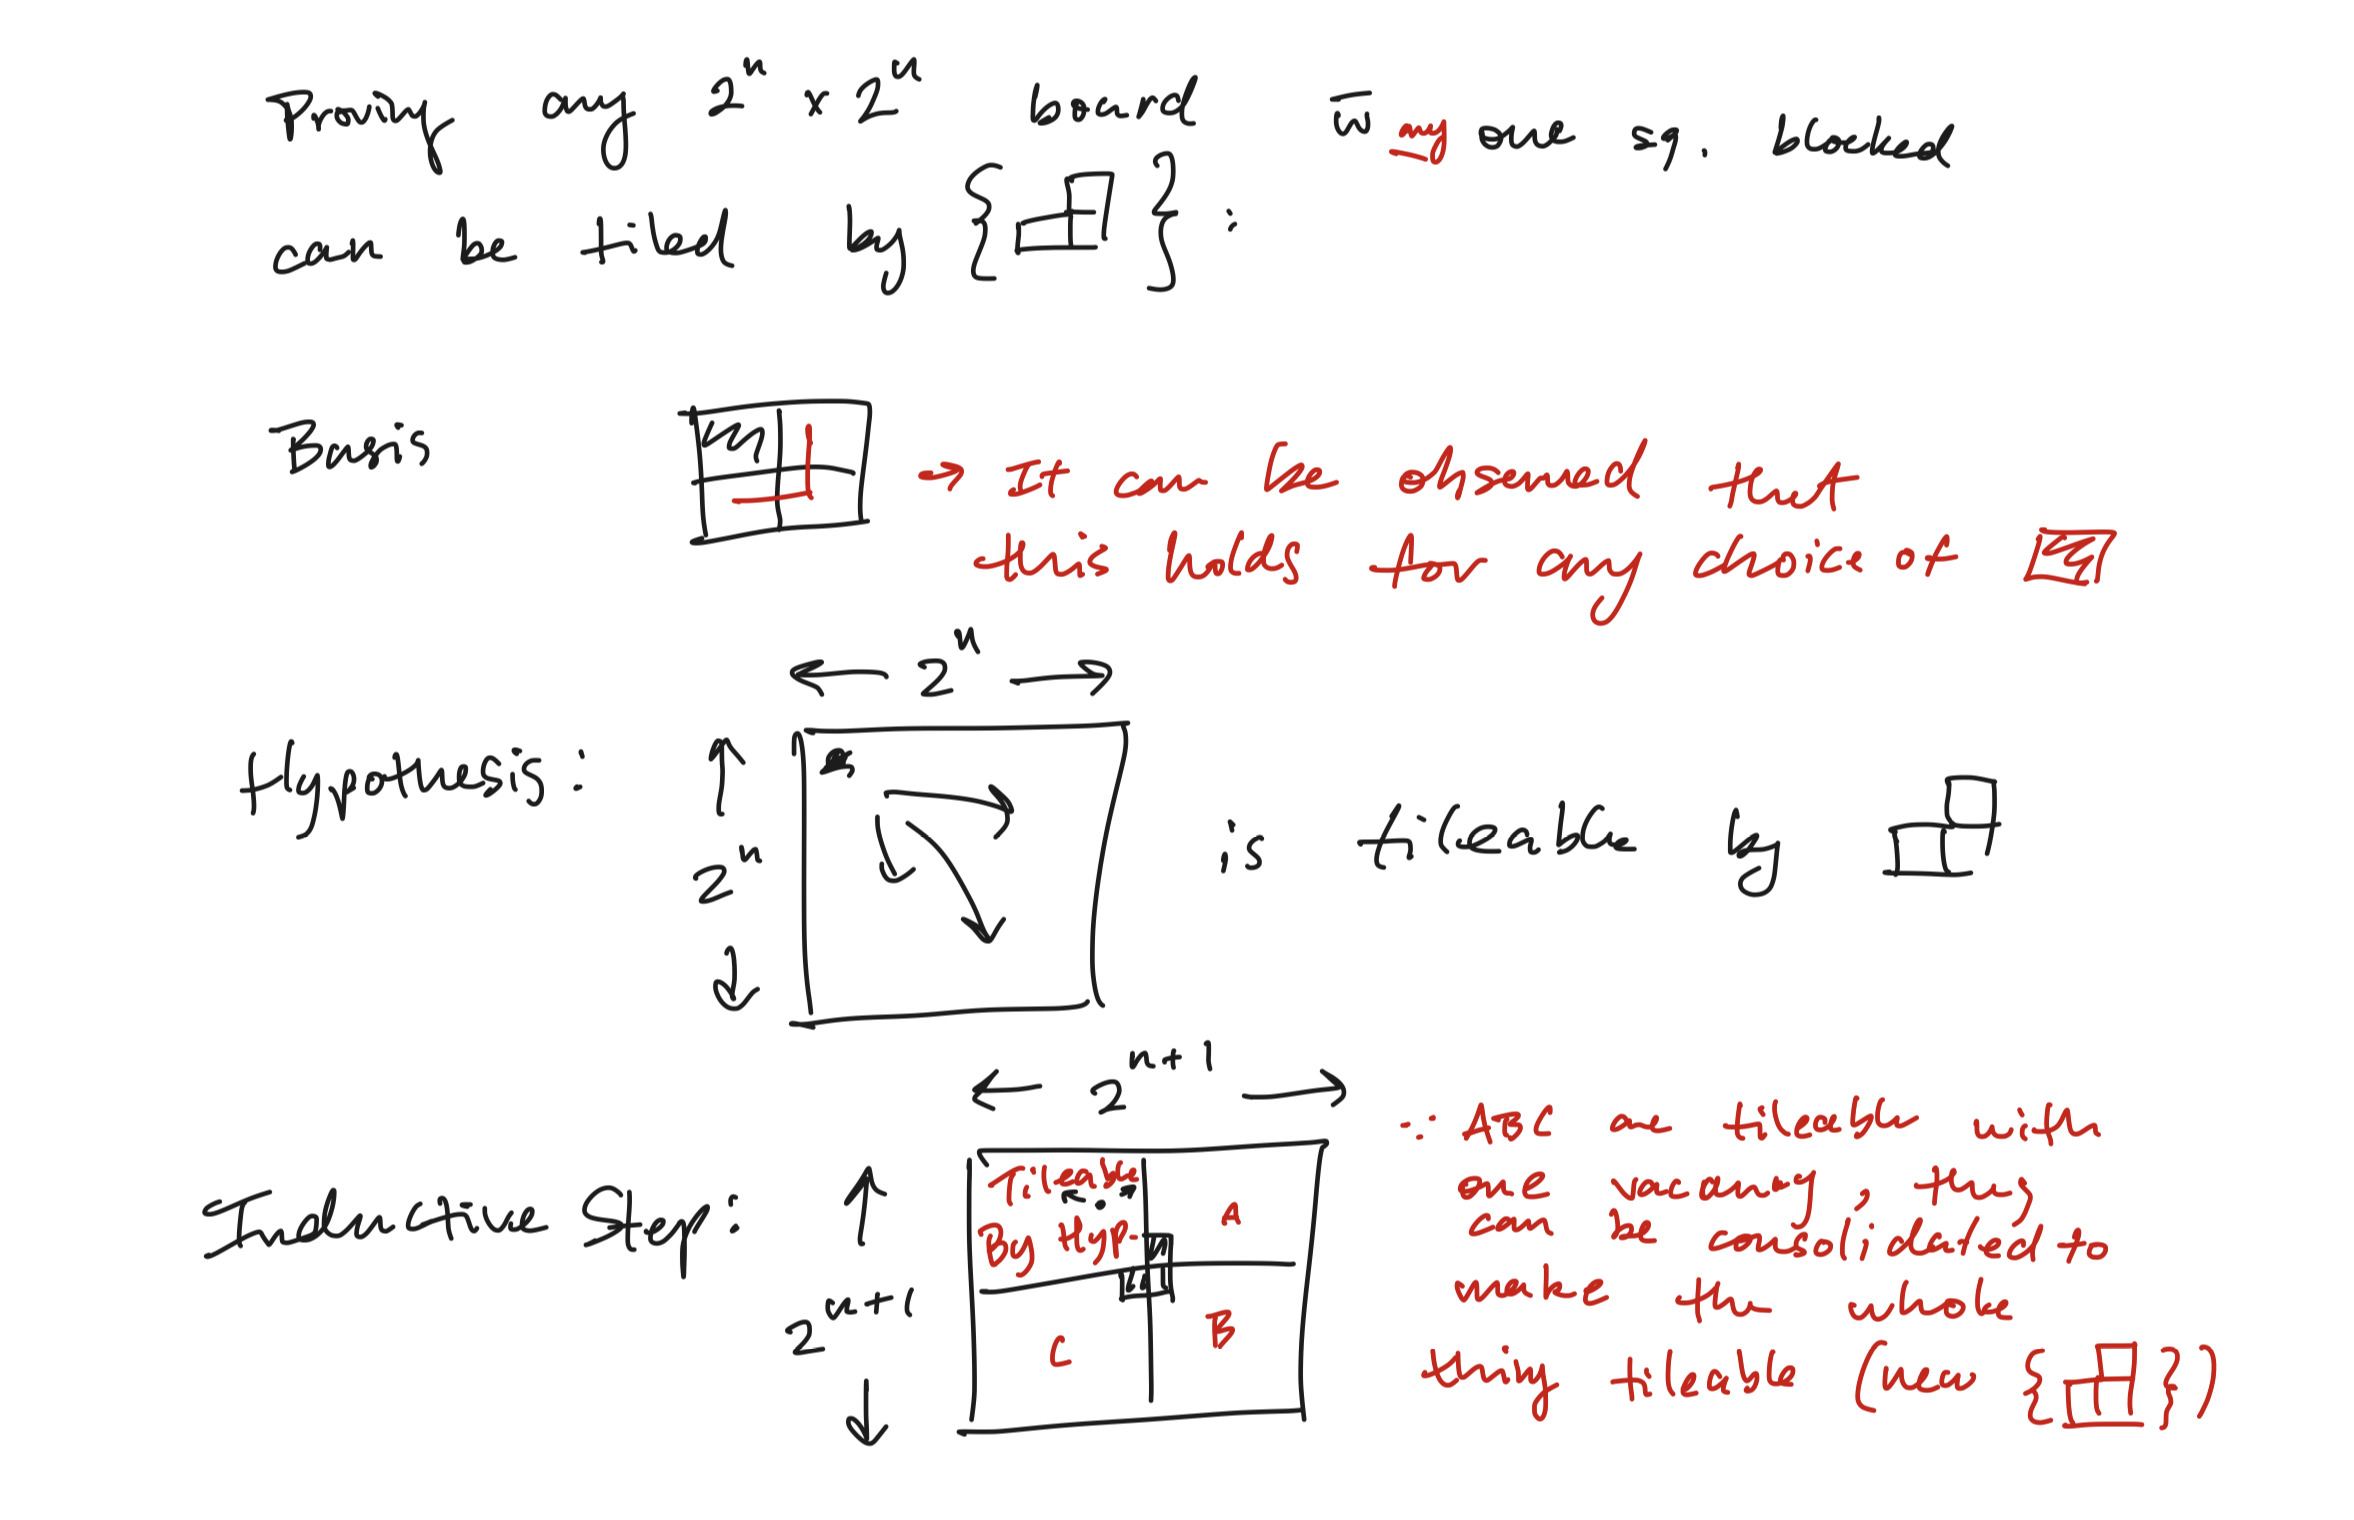 Proving any 2^n × 2^n board w̄ any one sq. blocked
can be tiled by { } :
Basis
→ It can be observed that
this holds for any choice of
2^n
Hypothesis :
2^n
is tileable by
2^n+1
Inductive Step :
2^n+1
Tileable
By Hyp.
A
B
C
∵ ABC are tileable with
one vacancy, they
can be consolidated to
make the whole
thing tileable (new { })